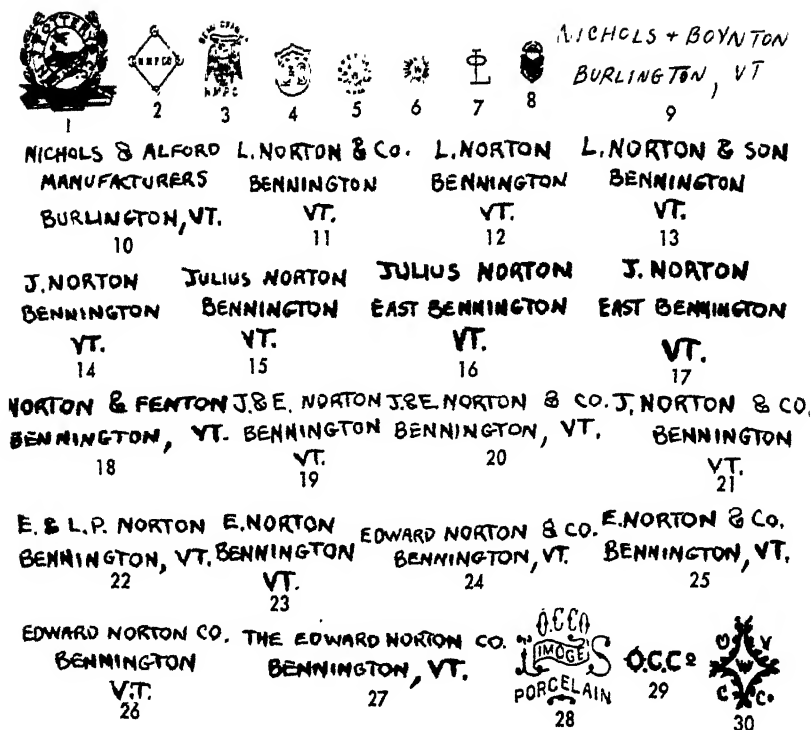 POTTERY
1
2
3
4
5
6
7
8
NICHOLS + BOYNTON
BURLINGTON, VT
9
NICHOLS & ALFORD
MANUFACTURERS
BURLINGTON, VT.
10
L. NORTON & CO.
BENNINGTON
VT.
11
L. NORTON
BENNINGTON
VT.
12
L. NORTON & SON
BENNINGTON
VT.
13
J. NORTON
BENNINGTON
VT.
14
JULIUS NORTON
BENNINGTON
VT.
15
JULIUS NORTON
EAST BENNINGTON
VT.
16
J. NORTON
EAST BENNINGTON
VT.
17
NORTON & FENTON
BENNINGTON, VT.
18
J. & E. NORTON
BENNINGTON
VT.
19
J. & E. NORTON & CO.
BENNINGTON, VT.
20
J. NORTON & CO.
BENNINGTON
VT.
21
E. & L. P. NORTON
BENNINGTON, VT.
22
E. NORTON
BENNINGTON
VT.
23
EDWARD NORTON & CO.
BENNINGTON, VT.
24
E. NORTON & CO.
BENNINGTON, VT.
25
EDWARD NORTON CO.
BENNINGTON
V.T.
26
THE EDWARD NORTON CO.
BENNINGTON, VT.
27
O.C.CO
LIMOGES
PORCELAIN
28
O.C.Co
29
O V
W
C Co
30